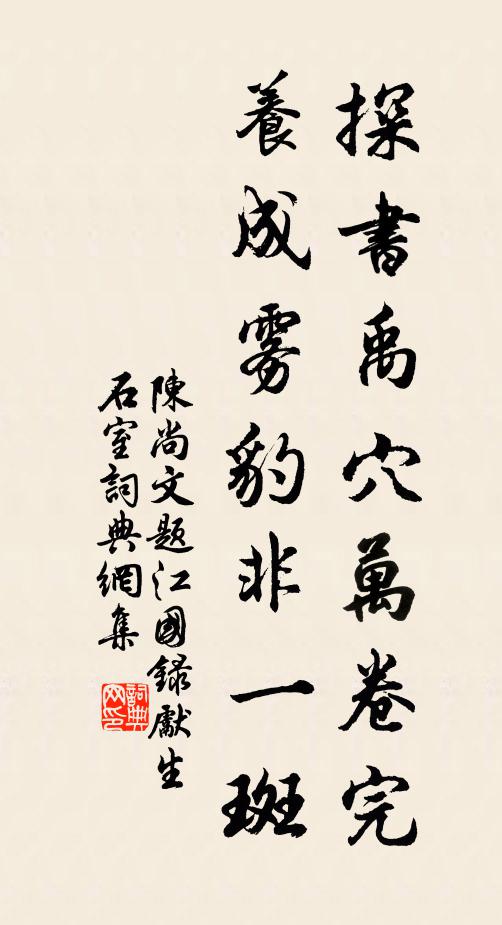 探書禹穴萬卷完
養成雾豹非一斑
陳尚文题江國録獻生
石室詞典網集
詞典网印